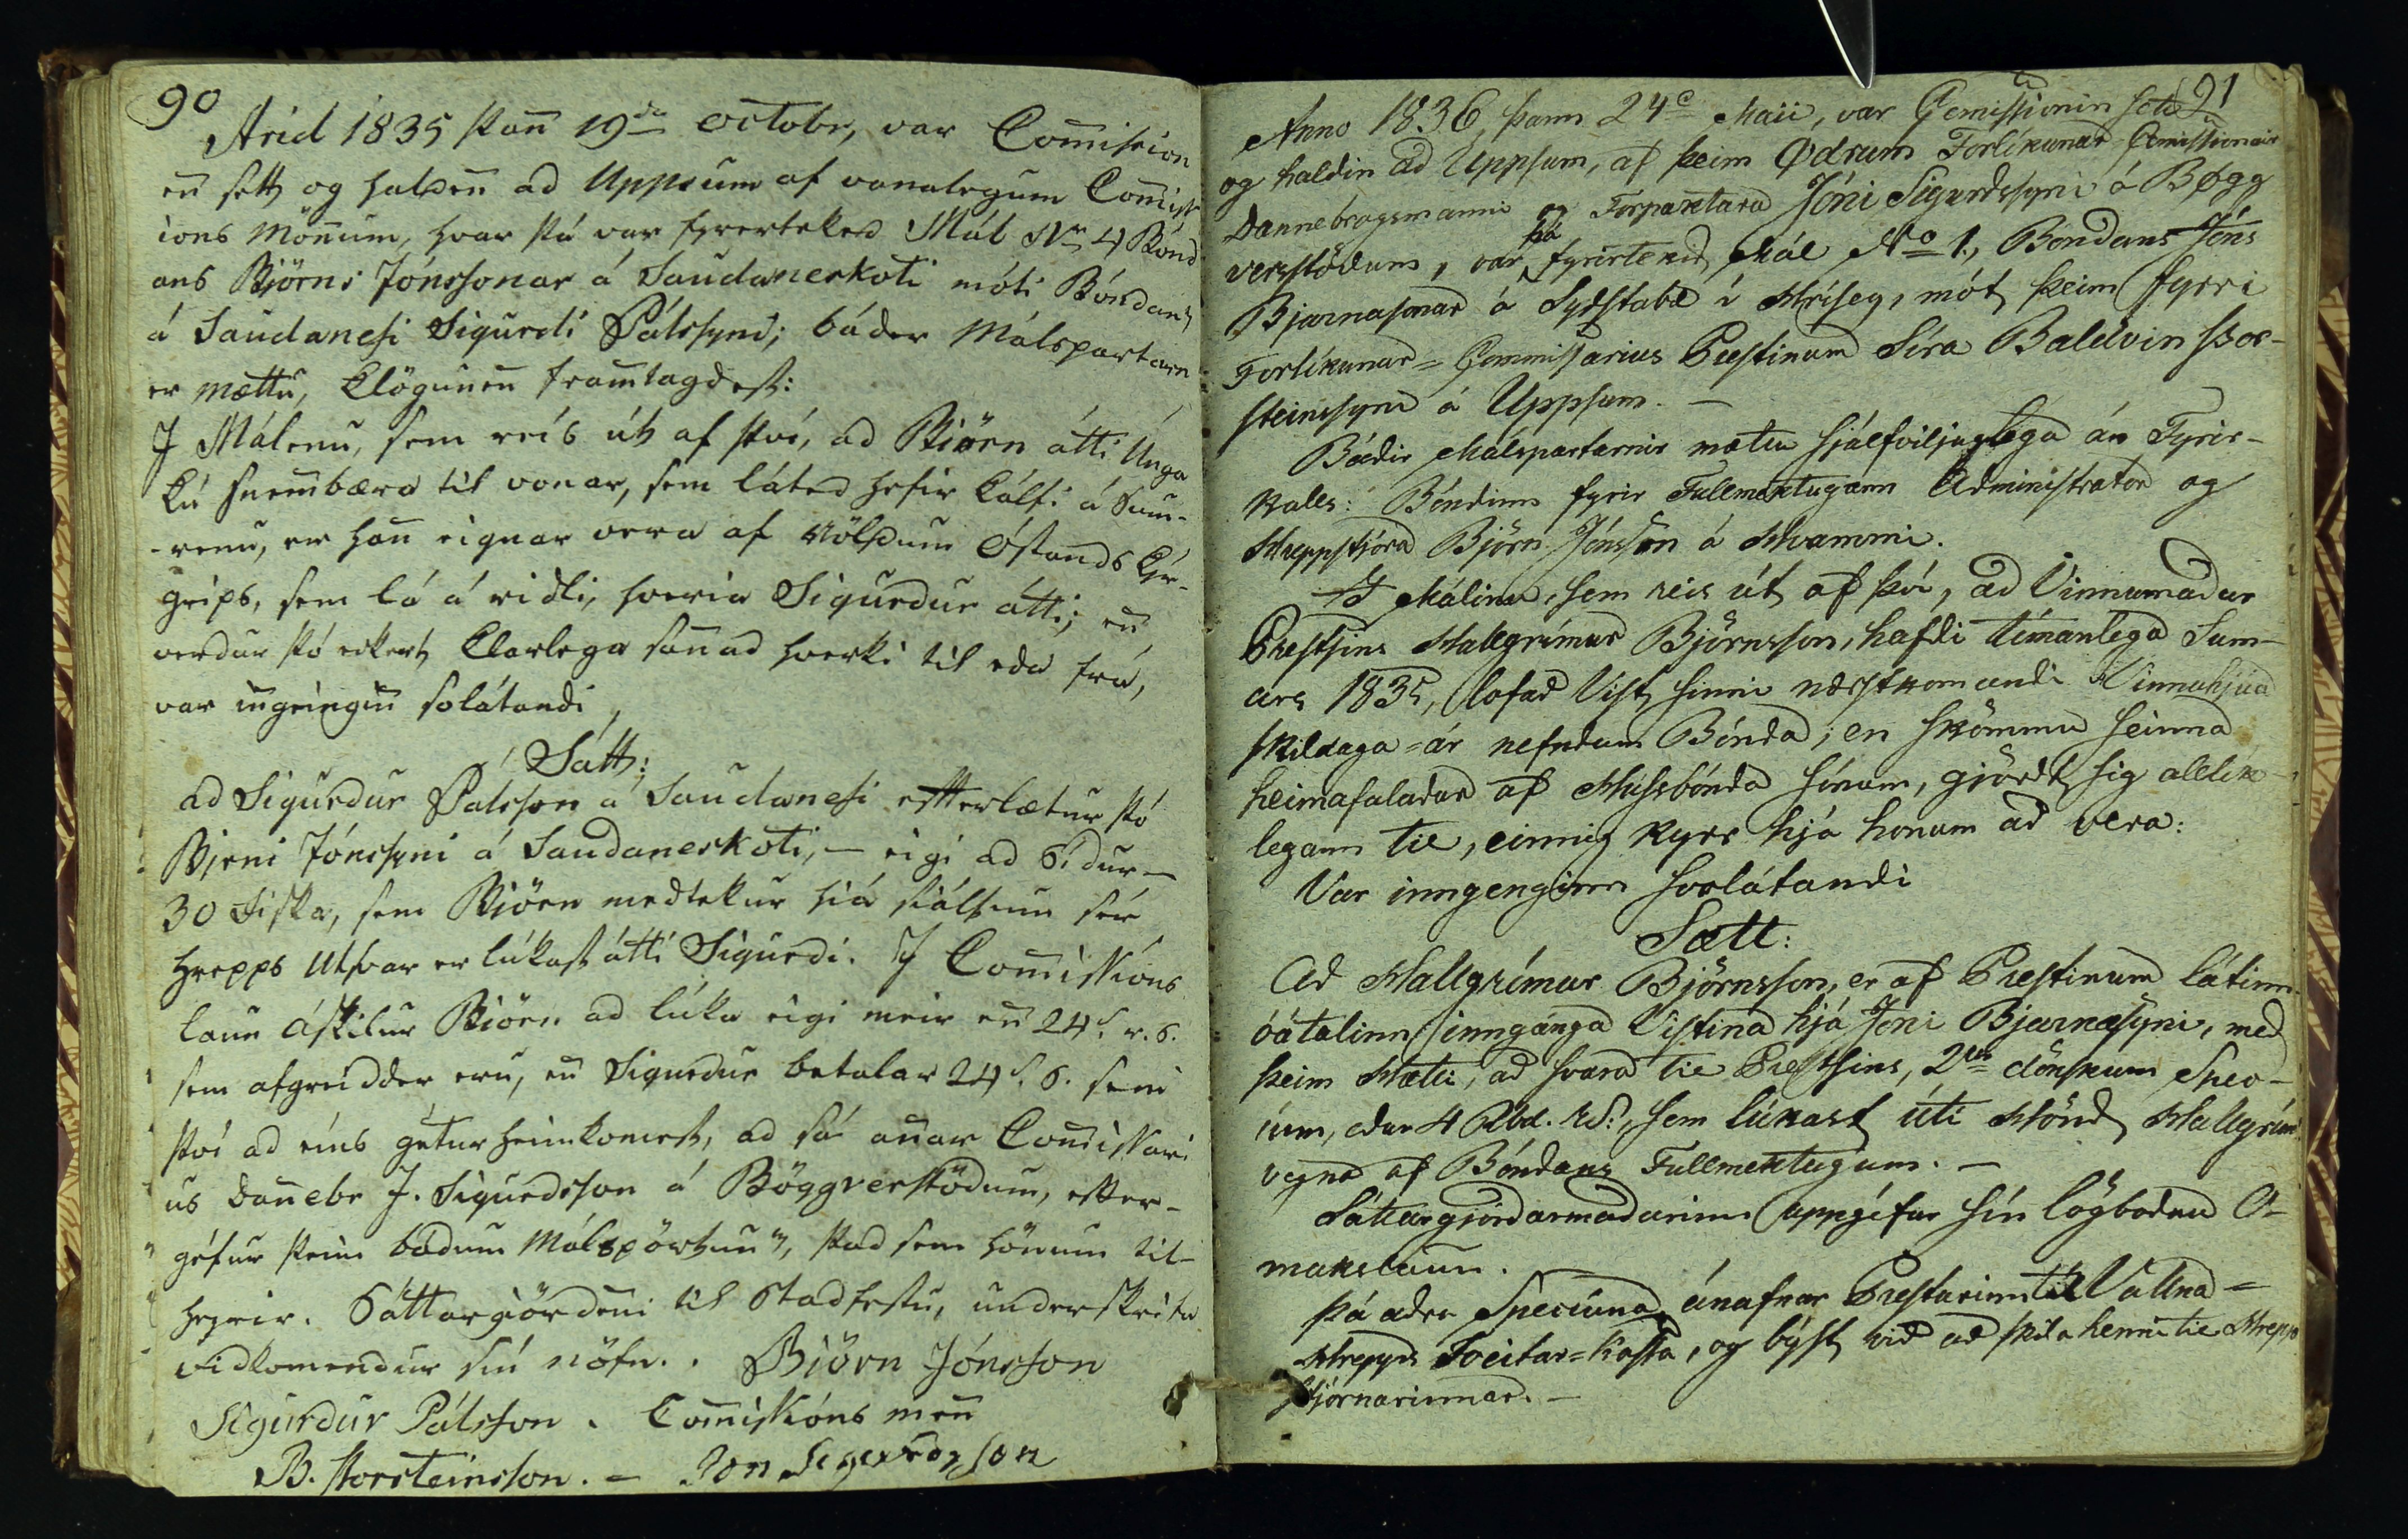 90
Árid 1835 þan̄ 19da octobr, var Com̄ision
en̄ sett og halden̄ ad Uppsum af vanalegum Com̄iss
ions Mön̄um, hvar þá var fyrertekid Mál Nr 4 Bónd
ans Björns Jónssonar á Saudaneskoti móti Bóndans
á Saudanesi Sigurdi Pálssyni; báder Málspartarn
er mættu, Klögunen̄ fram̄lagdest:
J Málenu, sem reis út af því, ad Björn átti Unga
Kú snem̄bæra til vonar, sem láted hefir Kálfi á Sum-
-renu, er han̄ eignar vera af völdum Óstands Kýr-
grips, sem lá á ridli, hveria Sigurdur átti; en̄
verdur þó eckert Klarlega san̄ad hverki til eda frá,
var in̄geingin̄ solátandi
Sátt:
ad Sigurdur Pálsson á Saudanesi epterlætur þó
Birni Jónssyni á Saudaneskoti, - eigi ad sídur -
30 Fiska, sem Björn medtekur hiá siálfum sér
Hrepps Utsvar er lúkast átti Sigurdi. J Com̄issíóns
laun áskilur Björn ad lúka eigi meir en̄ 24s. r. S.
sem afgreidder eru, en̄ Sigurdur betalar 24s. S. sem
því ad eins getur heimkomest, ad sá an̄ar Com̄issari
us Dan̄ebr J. Sigurdsson á Böggverstödum, efter-
géfur þeim bádum Málspörtum, þad sem hönum til-
heyrir. Sáttargiördeni til Stadfestu, underskrifa
vidkomendur sín nöfn. . Björn Jónsson
Sigurdur Pálsson . Com̄issíóns men̄
B. Þorsteinsson. - Jon Sigurdsson
91
Anno 1836, þann 24e Maii, var Comissionin sett
og haldin ad Uppsum, af þeim Ødrum Forlíkunar-Comissionair
Dannebrogsmanni og Forpaktara Jóni Sigurdssyni á Bøgg
verstödum, var þá fyrirtekid Mál No 1., Bondans Jóns
Bjarnasonar á Sydstabæ í Hrísey, mót þeim fyrri
Forlíkunar=Commissarius Prestinum Síra Baldvin Þor-
steinssyni á Uppsum. -
Bádir Málspartarnir mættu sjálfviljuglega án Fyrir-
kalls: Bóndinn fyrir Fullmektugann Administrator og
Hreppstjóra Björn Jónsson á Hvammi.
I Málinu, sem reis út af því, ad Vinnumadur
Prestsins Hallgrímur Björnsson, hafdi tímanlega Sum-
ars 1835, lofad Vist sinni næstkomandi Vinnuhjúa
skildaga=ár nefndum Bónda; en skömmu seinna
heimafaladur af Húsbónda sínum, gjördt sig allek-
legann til, einnig kyrr hjá honum ad vera:
Var inngenginn svolátandi
Sætt:
Ad Hallgrímur Björnsson, er af Prestinum látinn
óátalinn inngánga Vistina hjá Jóni Bjarnasyni, med
þeim Hætti, ad svara til Prestsins, 2ur dönskum Spec-
íum, edur 4 Rbd. r.S:, sem lúkast úti Hönd Hallgríms
vegna af Bóndans Fullmektugum. -
Sáttargjördarmadurinn uppgéfur sín lögbodnu O-
makslaun. -
Þá adra Specíuna ánafnar Presturinn til Vallna=
Hrepps Sveitar=Kassa, og býst vid ad skila henni til Hrepp
stjórnarinnar. -